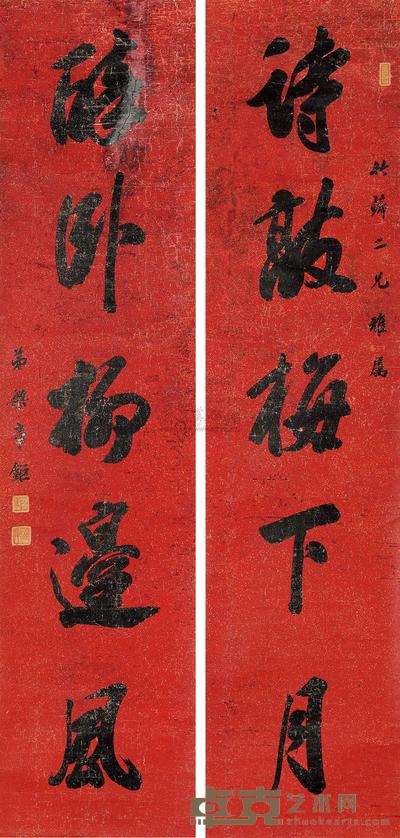 詩敲梅下月
竹葊二兄雅屬
醉卧柳邊風
弟梁章鉅
卓克艺术网
www.zhuokearts.com